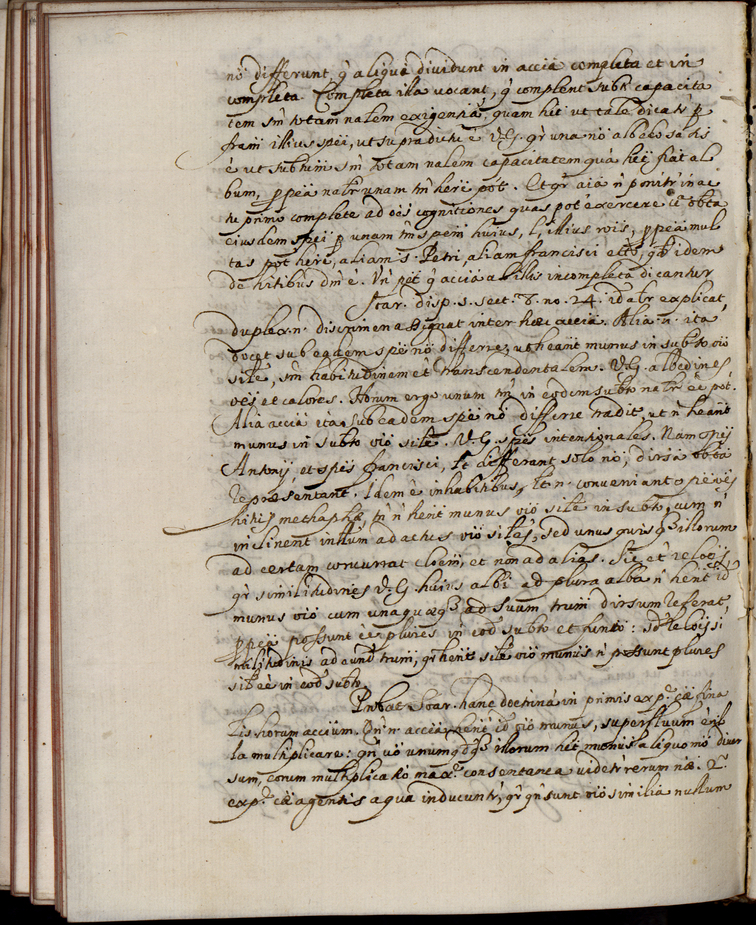 nō differunt, q̄ aliqui dividunt in accīa completa et in
completa. Completa illa vocant, q̄ complent subti capacita
tem sm̄ totam nalem exigentiā, quam hēt ut tale dicatr p
fram illius spēi, ut supradictū ē V.G. qr una nō albedo satis
ē ut subtum sm̄ totam nalem capacitatem quā hēt fiat al
bum, ppeā natr unam tm̄ hēre pōt. Et qr aīa n̄ ponitr in ac
tu primo complete ad oēs cognitiones quas pōt exercere c
eiusdem spēi p unam tm̄ spēm huius, l, illius rōis, ppeā mul
tas pōt hēre, aliam s. Petri, aliam francisci etc., idem
de hitibus dm̄ ē. Un̄ pēt q̄ accīa ab illis incompleta dicantur
Soar. disp. 5. sect. 8. no. 24. id alr explicat,
duplex n. discrimen assignat inter hæc accīa. Alia n. ita
docet sub eadem spē nō differre, ut heānt munus in subto oīo
sile, sm̄ habitudinem et transcendentalem. V.G. albedines
oēs et calores. Horum ergo unum tm̄ in eodem subto natr ēe pōt.
Alia accīa ita sub eadem spē nō differre tradit, ut n̄ heānt
munus in subto oīo sile. V.G. spēs intensionales. Nam spēs
Antonij et spēs francisci, lt differant solo nō, diversa obta
repræsentant. Idem ē in habitibus, lt n. conveniant
hitus methaphcæ, tm̄ n̄ hent munus oīo sile in subto, cum n̄
inclinent illum ad actus oīo siles, sed unus quisq illorum
ad certam concurrat cloem, et non ad alias. Sic et reloēs
qr similitudines V.G. huius albi ad plura alba n̄ hent id
munus oīo cum unaquæq ad suum trum dirsum referat,
ppeā possunt ēe plures in eod subto et hinto: sd reloēs si
militudinis ad eund trum, qr hent sile oīo munus n̄ possunt plures
sil ēe in eod subto.
Probat Soar. hanc doctrinā in primis ex p. cā fina
lis horum accīum. Qn̄ n. accīa hent id oīo munus, superfluum ē il
la multiplicare: qn̄ vō unumqdq illorum hēt munus aliquo mō diver
sum, eorum multiplicatio max. consentanea videtr rerum næ. 2.
ex p. cæ agentis a qua inducuntr, qr qn̄ sunt oīo similia nullum